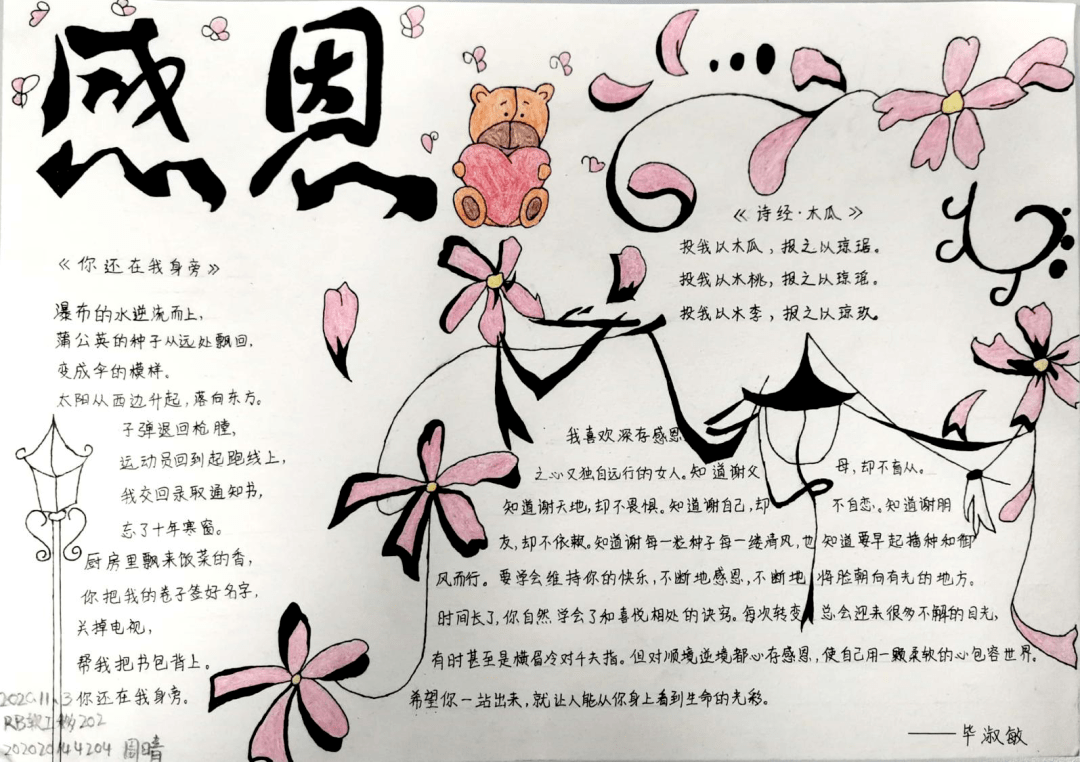 感恩
《你还在我身旁》
瀑布的水逆流而上，
蒲公英的种子从远处飘回，
变成伞的模样。
太阳从西边升起，落向东方。
子弹退回枪膛，
运动员回到起跑线上，
我交回录取通知书，
忘了十年寒窗。
厨房里飘来饭菜的香，
你把我的卷子签好名字，
关掉电视，
帮我把书包背上。
你还在我身旁。
2020.11.3
202020144204 周晴
《诗经·木瓜》
投我以木瓜，报之以琼琚。
投我以木桃，报之以琼瑶。
投我以木李，报之以琼玖。
我喜欢深存感恩
之心又独自远行的女人。知道谢父母，却不盲从。
知道谢天地，却不畏惧。知道谢自己，却不自恋。知道谢朋
友，却不依赖。知道谢每一粒种子每一缕清风，也知道要早起播种和御
风而行。要学会维持你的快乐，不断地感恩，不断地将脸朝向有光的地方。
时间长了，你自然学会了和喜悦相处的诀窍。每次转变总会迎来很多不解的目光，
有时甚至是横眉冷对千夫指。但对顺境逆境都心存感恩，使自己用一颗柔软的心包容世界。
希望你一站出来，就让人能从你身上看到生命的光彩。
——毕淑敏